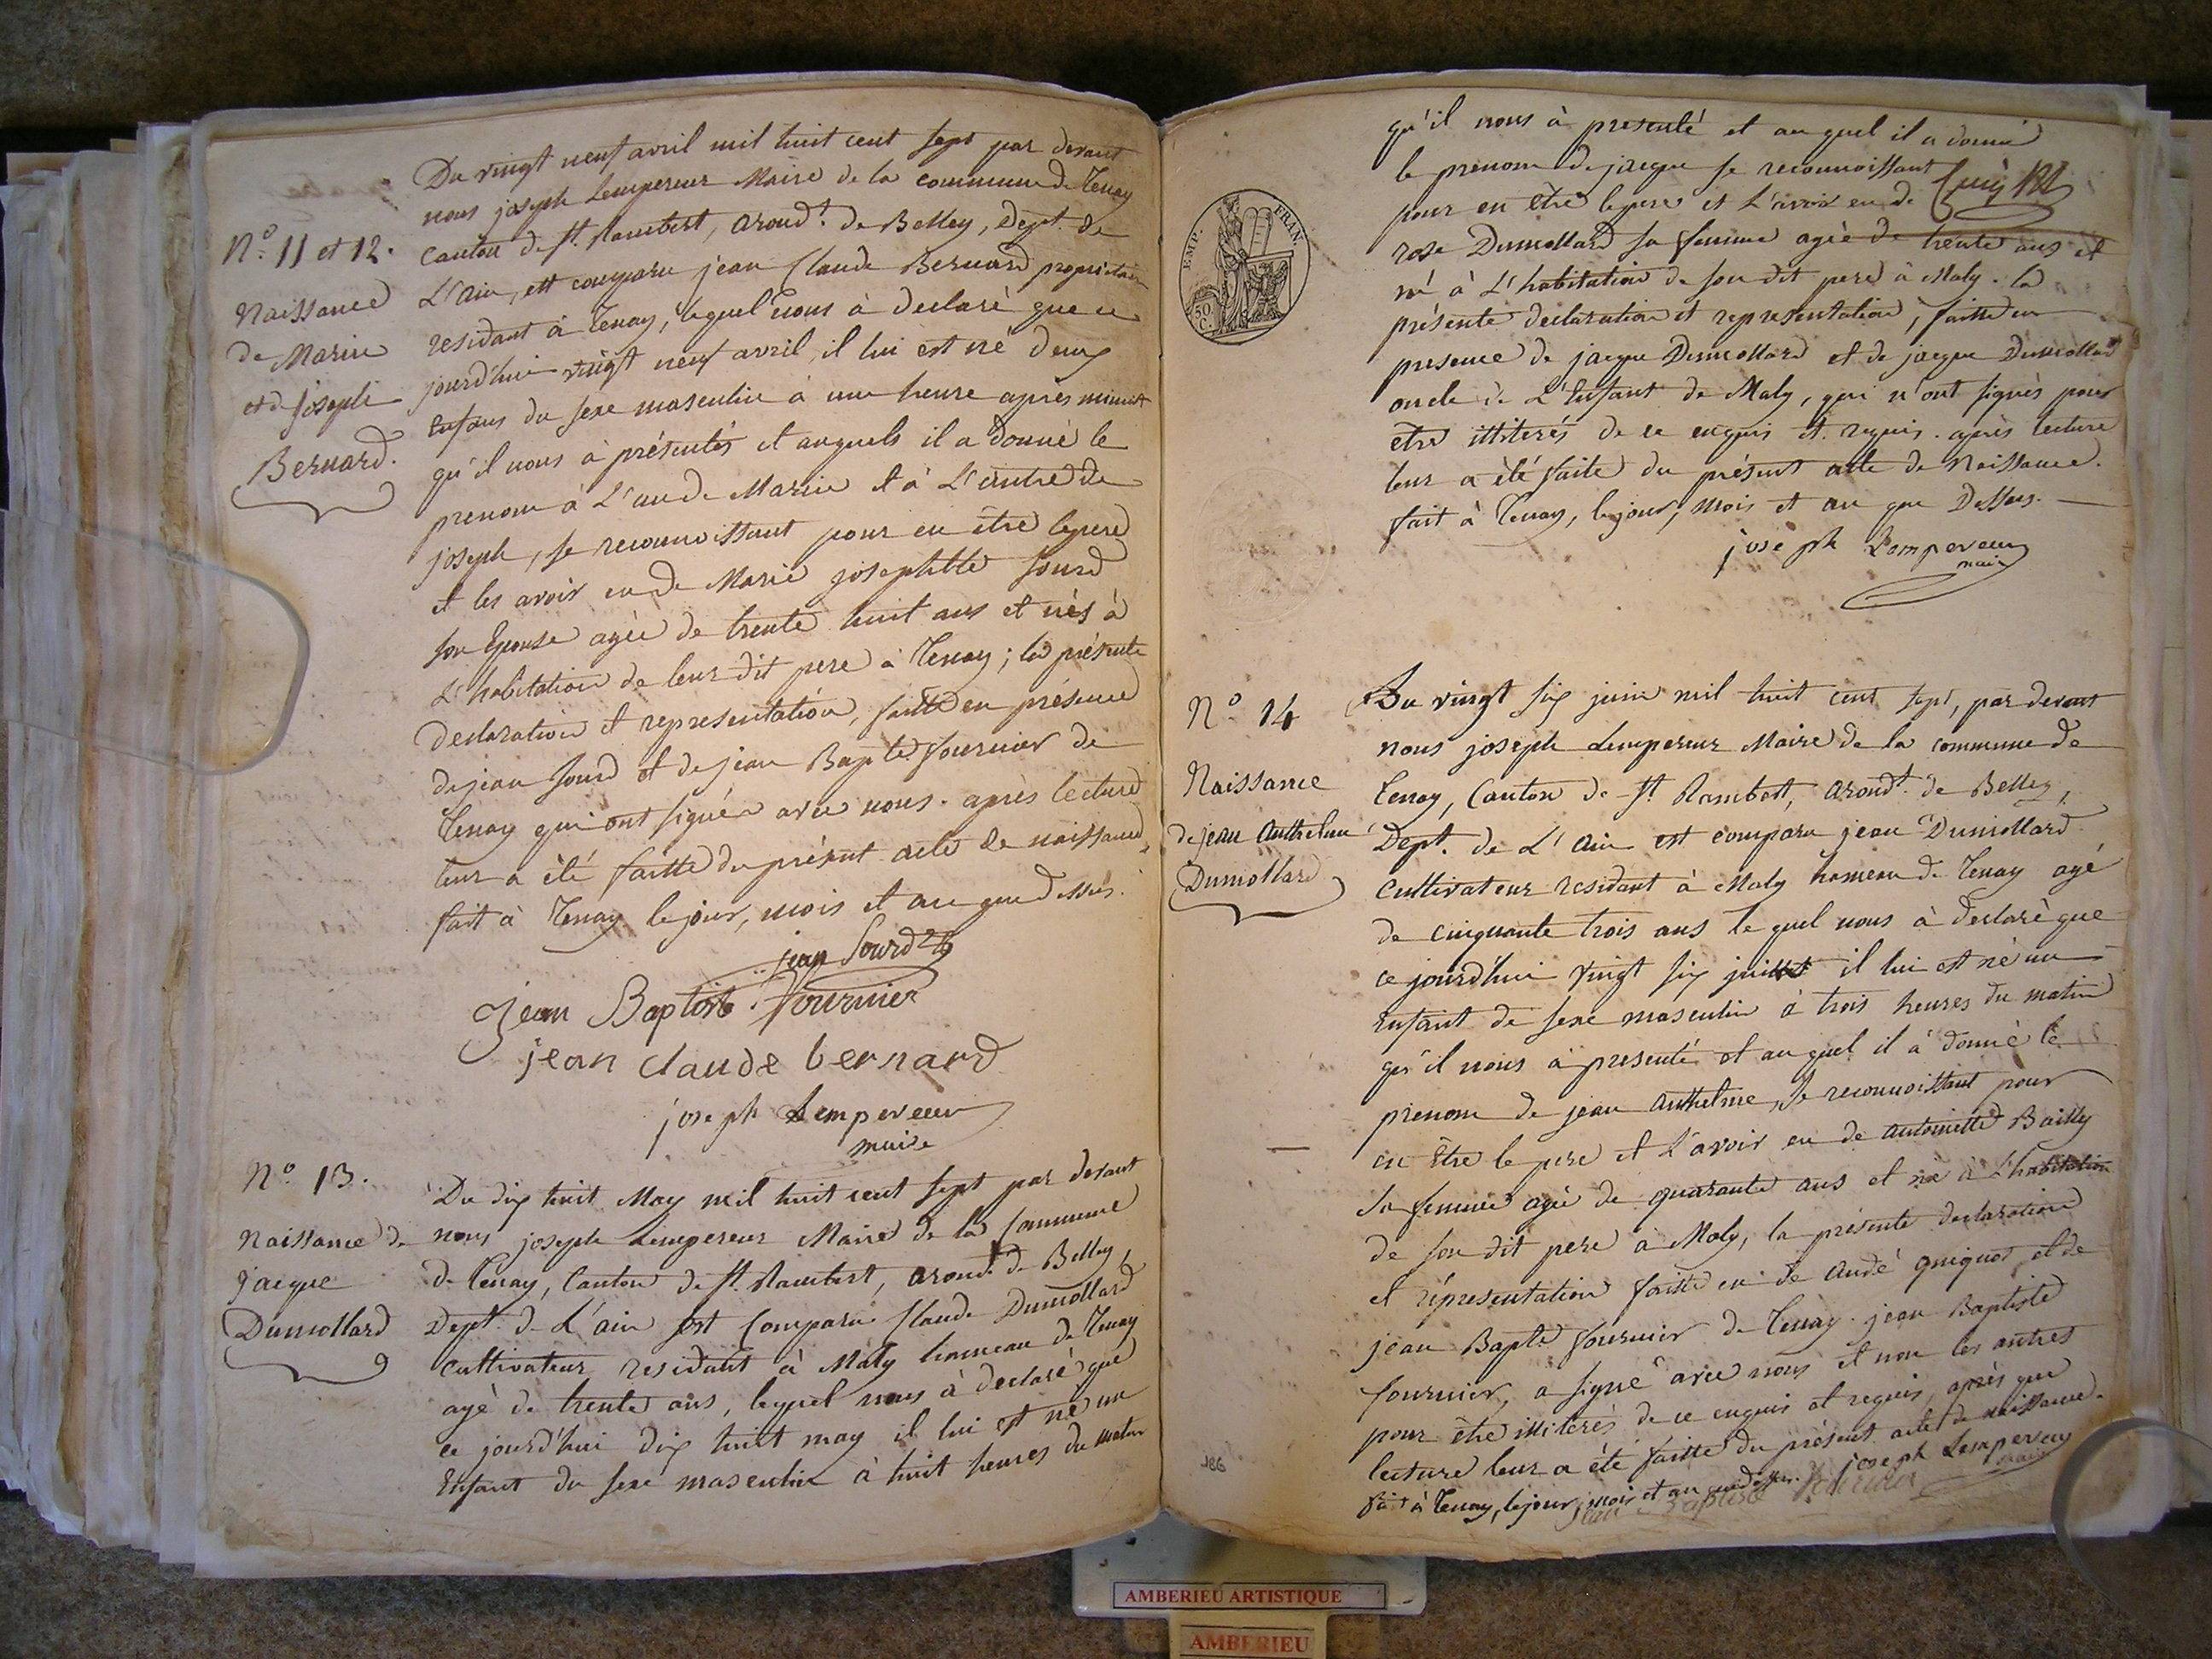 Du vingt neuf avril mil huit cent sept par devant
nous joseph Lempereur Maire de la commune de Tenay
Canton de St. Rambert, arond.t de Belley, Dept. de
L'ain, est comparu jean Claude Bernard propriétaire
residant à Tenay, lequel nous à declaré que ce
jourd'hui vingt neuf avril, il lui est né deux
Enfans du sexe masculin à une heure après minuit
qu'il nous à présentés et auquels il a donné le
prenom à L'un de Marin et à L'autre de
joseph, se reconnoissant pour en être le pere
et les avoir eu de Marie josephtte Sourd
son Epouse agée de trente huit ans et nés à
L'habitation de leur dit pere à Tenay; la présente
declaration et representation, faitte en présence
de jean Sourd et de jean Bapte. fournier de
Tenay qui ont signés avec nous. après lecture
leur a été faitte du présent acte de naissance
fait à Tenay le jour, mois et an que dessus.
jean Sourd
Jean Baptiste Fournier
jean claude bernard
joseph Lempereur
maire
N.o 11 et 12.
Naissance
de Marin
et de joseph
Bernard.
N.o 13.
Naissance de
jacque
Dumollard
Du dix huit May mil huit cent sept par devant
nous joseph Lempereur Maire de la Commune
de Tenay, Canton de St. Rambert, arond. de Belley,
Dept. de L'ain est Comparu Claude Dumollard
cultivateur residant à Maly hameau de Tenay
agé de trente ans, lequel nous à declaré que
ce jourd'hui dix huit may il lui est né un
Enfant du sexe masculin à huit heures du matin
EMP. FRAN.
50 C.
qu'il nous à presenté et au quel il a donné
le prenom de jacque se reconnoissant
pour en être le pere et L'avoir eu de
rose Dumollard sa femme agée de trente ans et
né à L'habitation de son dit pere à Maly. la
présente declaration et representation, faitte en
presence de jacque Dumollard et de jacque Dumollard
oncle de L'Enfant de Maly, qui n'ont signés pour
être illiterés de ce enquis et requis. après lecture
leur a été faite du présent acte de Naissance.
fait à Tenay, le jour, mois et an que Dessus.
joseph Lempereur
maire
N.o 14
Naissance
de jean Anthelme
Dumollard
Du vingt six juin mil huit cent sept, par devant
nous joseph Lempereur Maire de la commune de
Tenay, Canton de St. Rambert, arond.t de Belley,
Dept. de L'ain est comparu jean Dumollard
cultivateur residant à Maly hameau de Tenay agé
de cinquante trois ans le quel nous à declaré que
ce jourd'hui vingt six il lui est né un
Enfant de sexe masculin à trois heures du matin
qu'il nous à presenté et au quel il à donné le
prenom de jean Anthelme, se reconnoissant pour
en être le pere et L'avoir eu de antoinette Bailly
sa femme agée de quarante ans et né à L'habitation
de son dit pere à Maly, la présente declaration
et répresentation faitte en de André et de
jean Bapte fournier de Tenay. jean Baptiste
fournier, a signé avec nous et non les autres
pour être illiterés de ce enquis et requis, après que
lecture leur a été faitte du présent acte de naissance.
fait à Tenay, le jour, mois et an que dessus. joseph Lempereur
maire
Jean Baptiste Fournier
186
AMBERIEU ARTISTIQUE
AMBERIEU